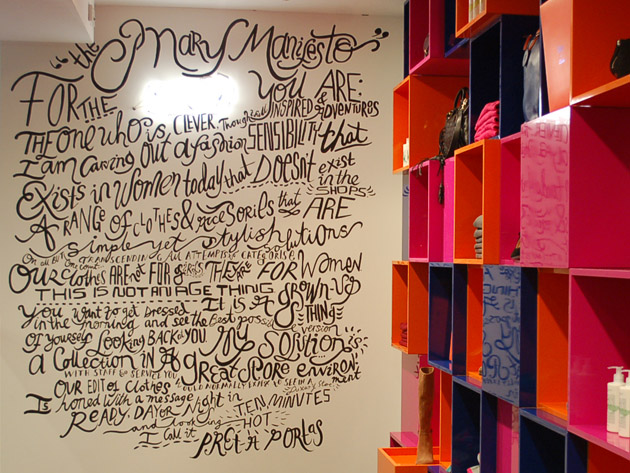 "the Mary Manifesto"
FOR THE YOU ARE:
THE ONE who is CLEVER, Thoughtful, INSPIRED & ADVENTURES
I am Carving OUT a fashion SENSIBILITY that
Exists in Women today that DOESN't exist in the SHOPS
A RANGE OF CLOTHES & that ARE
simple yet stylish solutions
TRANSCENDING ALL ATTEMPTS
OUR clothes ARE NOT FOR girls THEY ARE FOR Women
THIS IS NOT AN AGE THING It IS A GROWN-UP THING
YOU Want to get DRESSED
in the morning and see the Best possible version
Of Yourself Looking BACK at YOU. My SOLUTION is
a Collection IN A GREAT STORE ENVIRONment
WITH STAFF to SERVICE YOU
OUR EDIT of Clothes
Is honed with a message
READY. DAY OR Night in TEN MINUTES
and looking HOT
I call it PRET A PORTAS